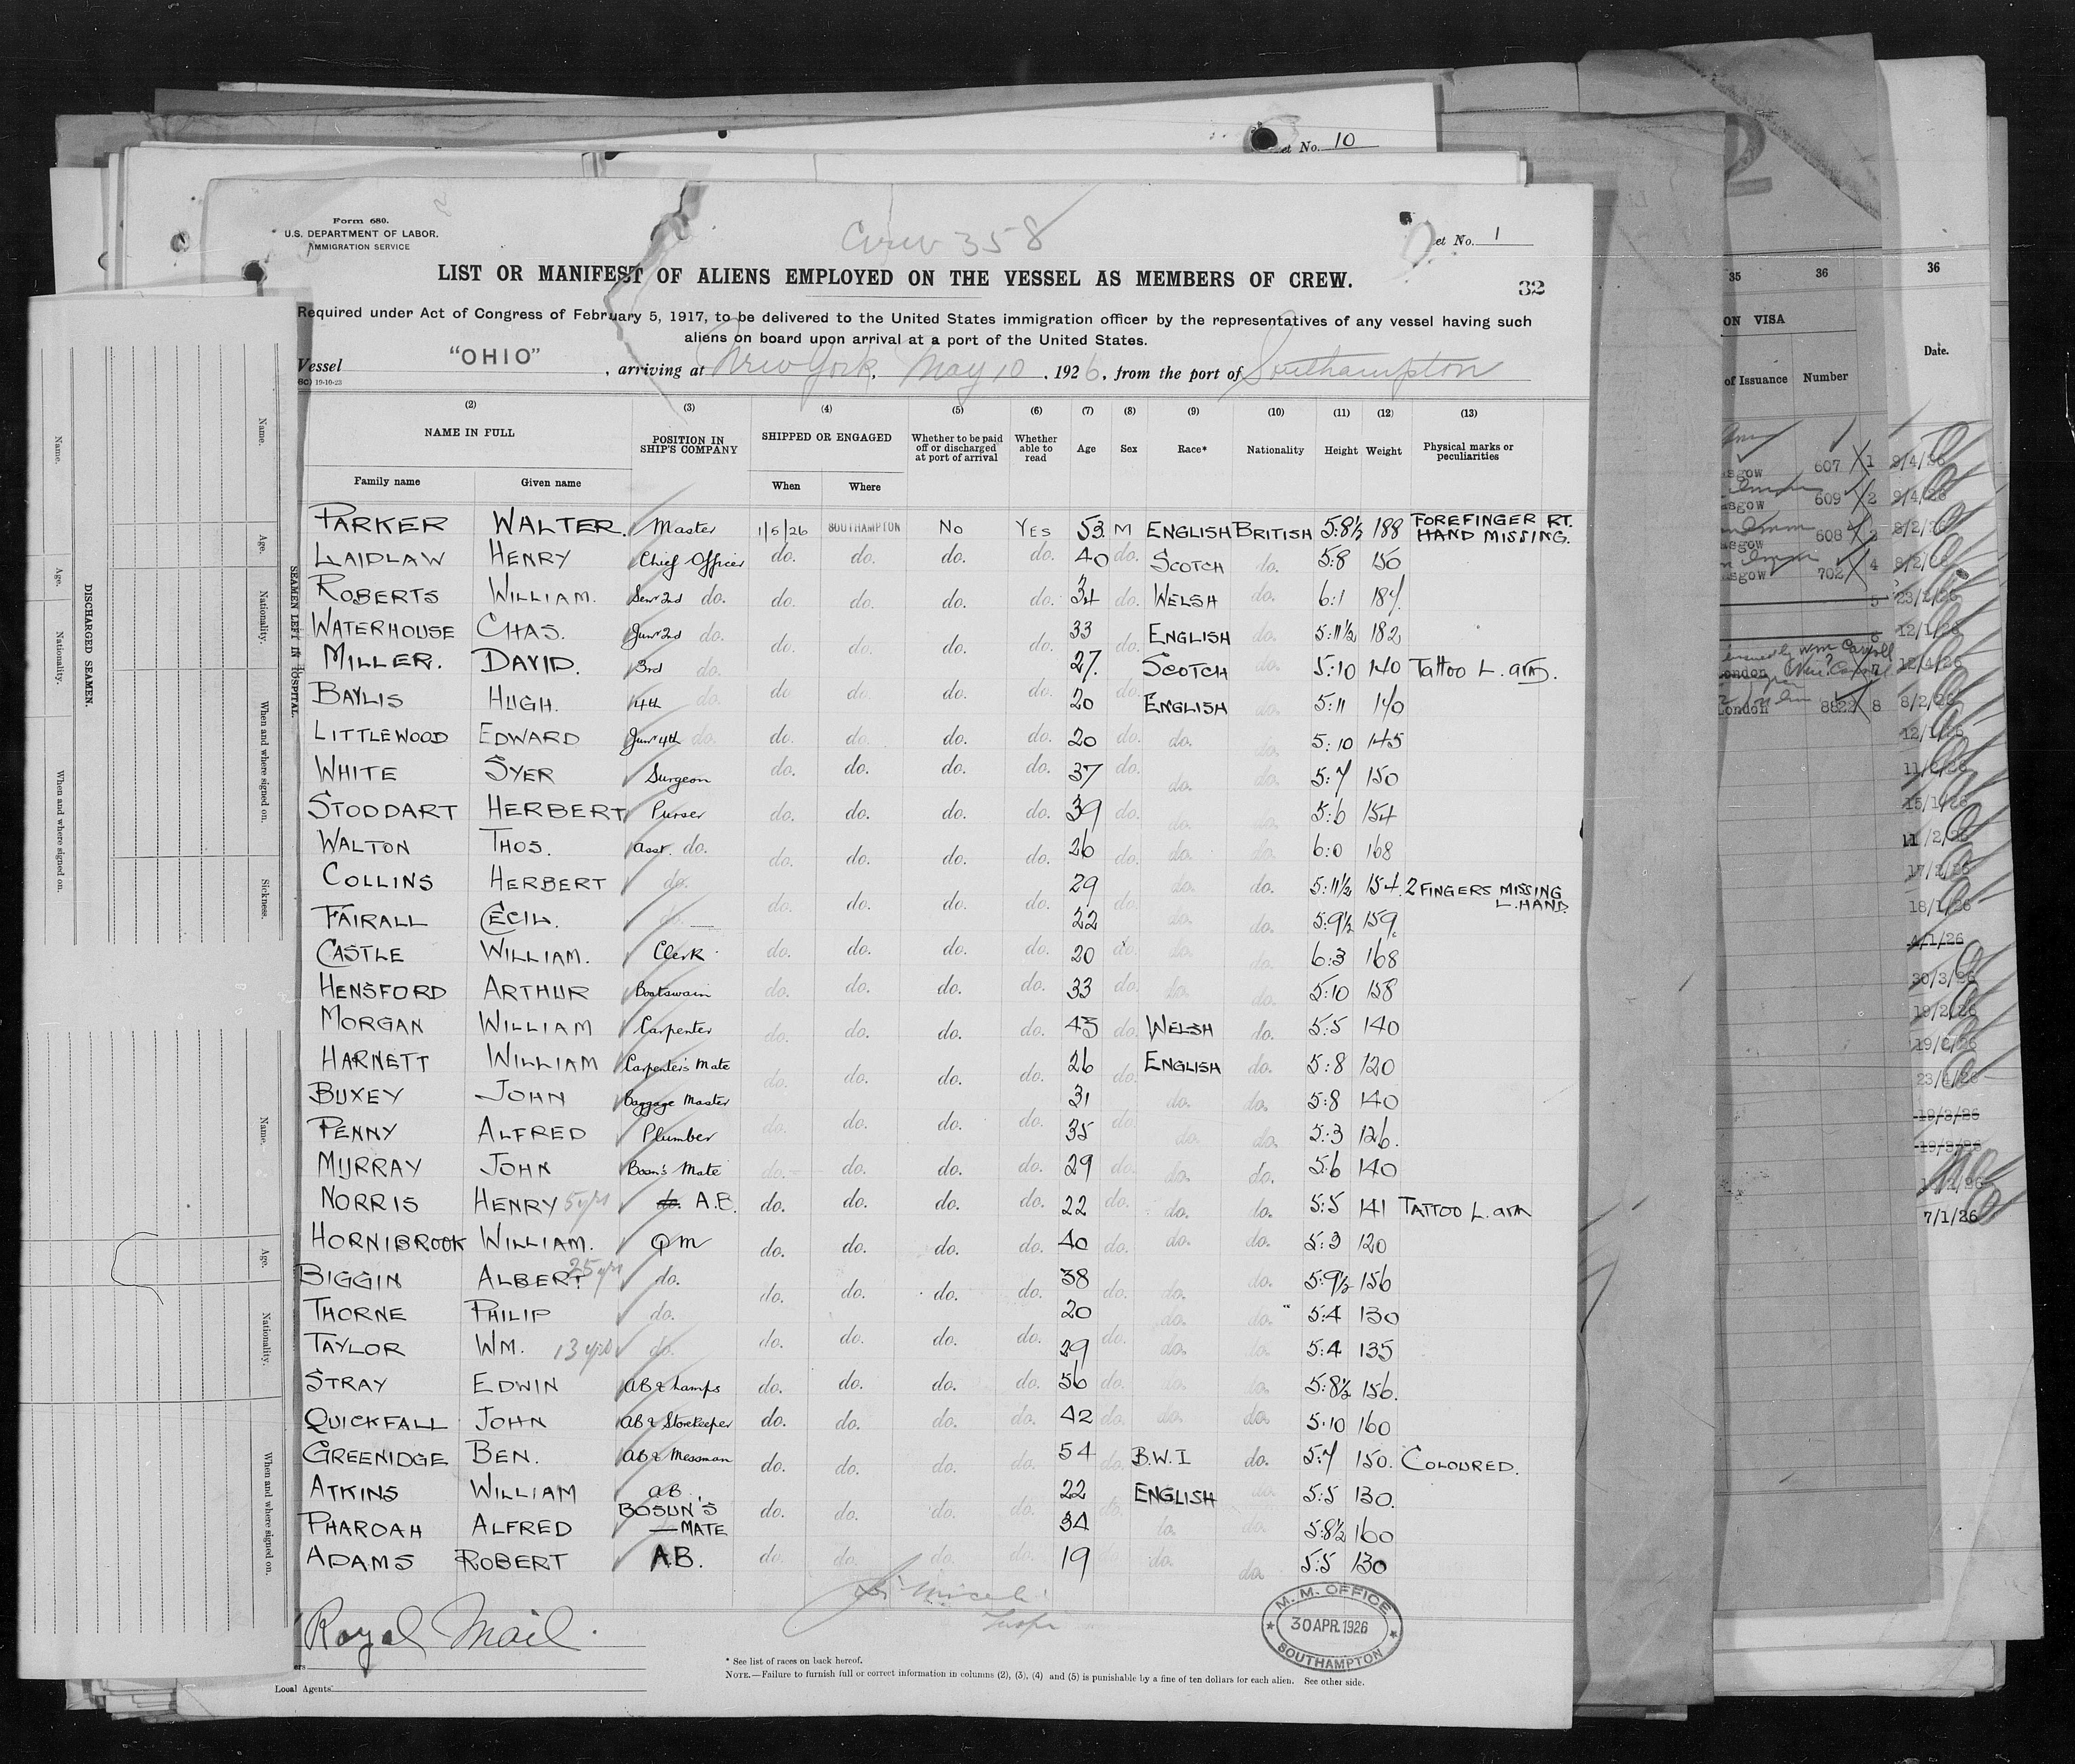 et No. 10
Form 680.
U.S. DEPARTMENT OF LABOR.
IMMIGRATION SERVICE
Crew 358
et No. 1
LIST OR MANIFEST OF ALIENS EMPLOYED ON THE VESSEL AS MEMBERS OF CREW.
32
Required under Act of Congress of February 5, 1917, to be delivered to the United States immigration officer by the representatives of any vessel having such
aliens on board upon arrival at a port of the United States.
Vessel "OHIO", arriving at New York, May 10, 1926, from the port of Southampton
19-10-23
(2) (3) (4) (5) (6) (7) (8) (9) (10) (11) (12) (13)
NAME IN FULL POSITION IN SHIP'S COMPANY SHIPPED OR ENGAGED Whether to be paid off or discharged at port of arrival Whether able to read Age Sex Race* Nationality Height Weight Physical marks or peculiarities
Family name Given name When Where
PARKER WALTER. Master 1/5/26 SOUTHAMPTON No YES 53. M ENGLISH BRITISH 5:8½ 188 FOREFINGER RT. HAND MISSING.
LAIDLAW HENRY Chief Officer do. do. do. do. 40 do. SCOTCH do. 5:8 150
ROBERTS WILLIAM. Senr 2nd do. do. do. do. do. 34 do. WELSH do. 6:1 184
WATERHOUSE CHAS. Junr 2nd do. do. do. do. do. 33 do. ENGLISH do. 5:11½ 182
MILLER. DAVID. 3rd do. 27. SCOTCH do. 5:10 140 Tattoo L. arm.
BAYLIS HUGH. 4th do. do do. do. do. 20 do. ENGLISH do. 5:11 140
LITTLEWOOD EDWARD Junr 4th do. do. do. do. do. 20 do. do. do. 5:10 145
WHITE SYER Surgeon do. do. do. do. 37 do. do. do. 5:7 150
STODDART HERBERT Purser do. do. do. do. 39 do. do. do. 5:6 154
WALTON THOS. Asst. do. do. do. do. do. 26 do. do. do. 6:0 168
COLLINS HERBERT do. 29 do. do. 5:11½ 154. 2 FINGERS MISSING L. HAND.
FAIRALL CECIL. do. do. do. do. do. 22 do. do. do. 5:9½ 159.
CASTLE WILLIAM. Clerk do. do. do. do. 20 do. do. do. 6:3 168
HENSFORD ARTHUR Boatswain do. do. do. do. 33 do. do. do. 5:10 158
MORGAN WILLIAM Carpenter do. do. do. do. 43 do. WELSH do. 5:5 140
HARNETT WILLIAM Carpenter's Mate do. do. do. do. 26 do. ENGLISH do. 5:8 120
BUXEY JOHN Baggage Master 31 do. do. 5:8 140
PENNY ALFRED Plumber do. do. do. do. 35 do. do. do. 5:3 126.
MURRAY JOHN Bosn's Mate do. do. do. do. 29 do. do. do. 5:6 140
NORRIS HENRY 5 yrs do. A.B. do. do. do. do. 22 do. do. do. 5:5 141 TATTOO L. arm
HORNIBROOK WILLIAM. QM do. do. do. do. 40 do. do. do. 5:3 120
BIGGIN ALBERT 25 yrs do. do. do. do. do. 38 do. do. do. 5:9½ 156
THORNE PHILIP do. 20 do. 5:4 130
TAYLOR WM. 13 yrs do. do. do. do. do. 29 do. do. do. 5:4 135
STRAY EDWIN AB & Lamps do. do. do. do. 56 do. do. do. 5:8½ 156.
QUICKFALL JOHN AB & Storekeeper do. do. do. do. 42 do. do. do. 5:10 160
GREENIDGE BEN. AB & Messman do. do. do. do. 54 do. B.W.I do. 5:7 150. COLOURED.
ATKINS WILLIAM AB 22 ENGLISH do. 5:5 130.
PHAROAH ALFRED BOSUN'S MATE do. do. do. do. 34 do. do. do. 5:8½ 160
ADAMS ROBERT A.B. do. do. do. do. 19 do. do. do. 5:5 130
Royal Mail.
M. M. OFFICE
30 APR. 1926
SOUTHAMPTON
* See list of races on back hereof.
NOTE.—Failure to furnish full or correct information in columns (2), (3), (4) and (5) is punishable by a fine of ten dollars for each alien. See other side.
Local Agents
DISCHARGED SEAMEN.
Name. Age. Nationality. When and where signed on.
SEAMEN LEFT IN HOSPITAL.
Name. Age. Nationality. When and where signed on. Sickness.
Name. Age. Nationality. When and where signed on.
35 36
ON VISA
of Issuance Number
asgow 607 1
asgow 609 2
asgow 608 3
asgow 702 4
5
6
London 7
London 8822 8
36
Date.
9/4/26
9/4/26
8/2/26
8/2/26
23/2/26
12/1/26
12/4/26
8/2/26
12/1/26
11/2/26
15/1/26
11/2/26
17/2/26
18/1/26
4/1/26
30/3/26
19/2/26
19/2/26
23/4/26
19/3/26
19/3/26
7/1/26